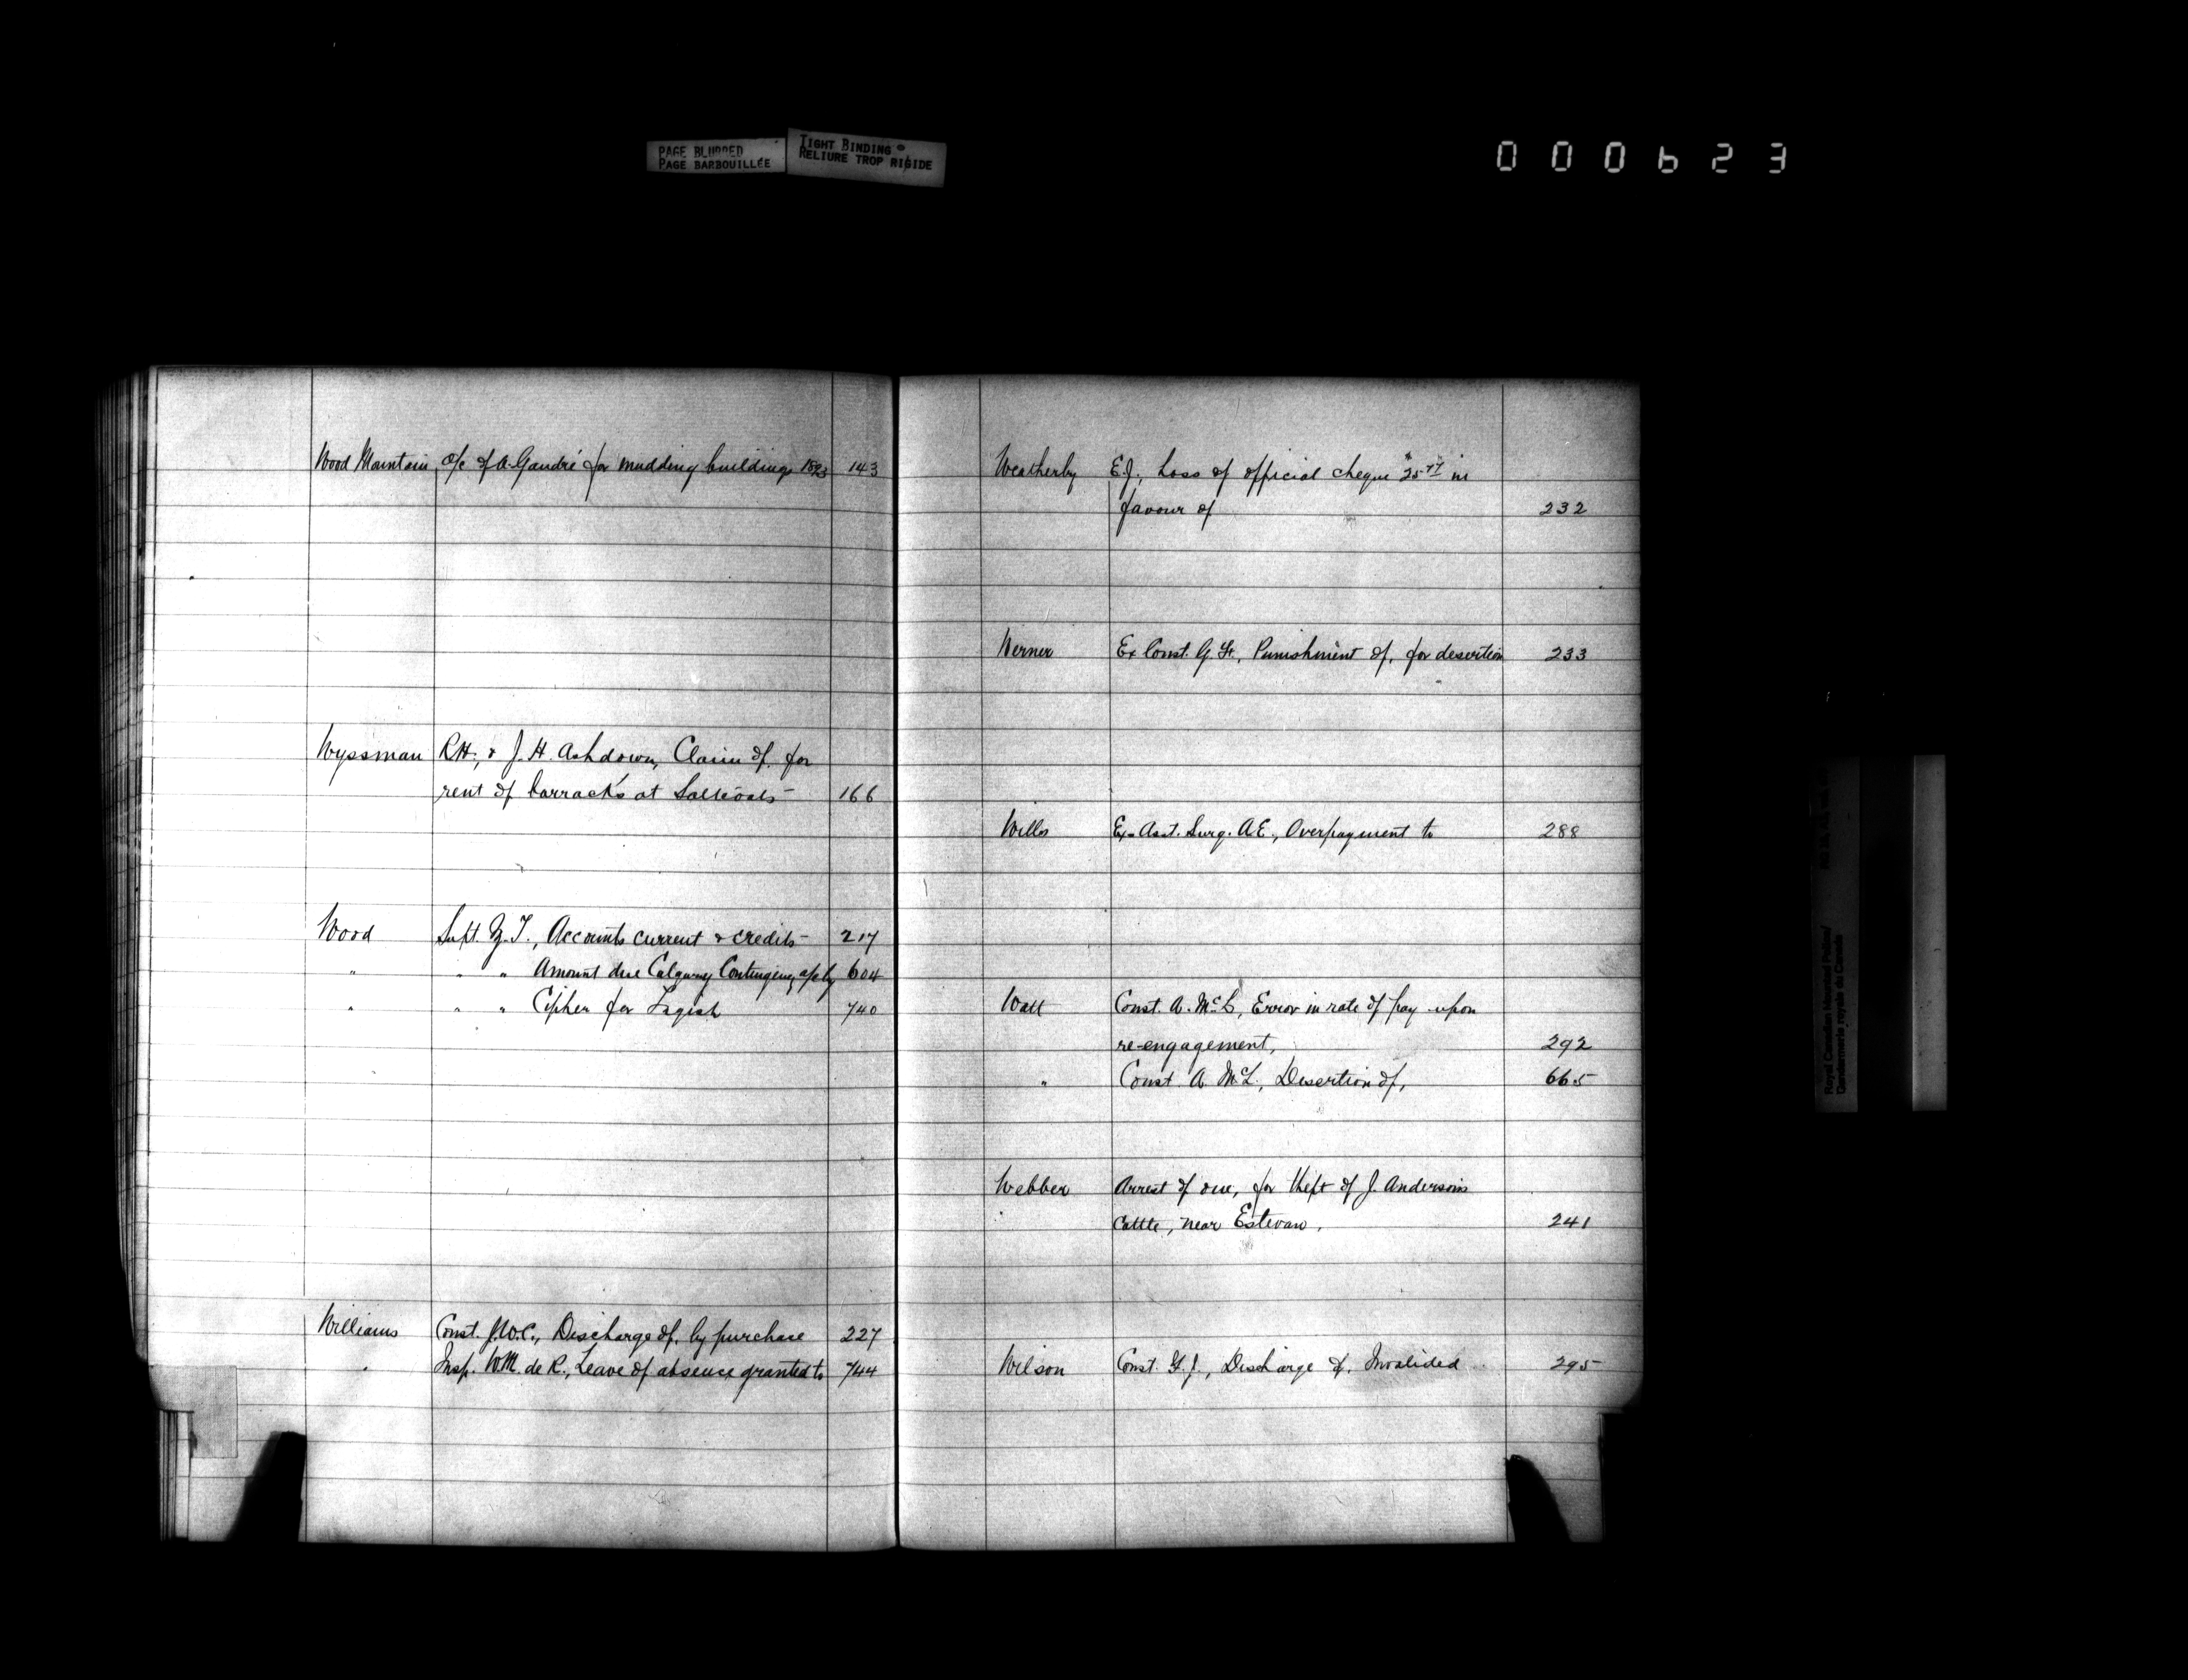 PAGE BLURRED
PAGE BARBOUILLÉE
TIGHT BINDING
RELIURE TROP RIGIDE
000623
Wood Mountain a/c of A. Gaudré for mudding buildings 1893 143
Wyssman R.H., & J.H. Ashdown, Claim of, for
rent of barracks at Saltcoats 166
Wood Supt. Z.T., Accounts current & credits 217
" " " Amount due Calgary Contingency a/c by 604
" " " Cipher for Tagish 740
Williams Const. J.W.C., Discharge of, by purchase 227
" Insp. W.M. de R., Leave of absence granted to 744
Weatherby E.J., Loss of official cheque in
favour of 232
Werner Ex Const. G. Punishment of, for desertion 233
Wills Ex-Asst. Surg. A.E., Overpayment to 288
Watt Const. A. McL, Error in rate of pay upon
re-engagement, 292
" Const. A. McL., Desertion of, 665
Webber Arrest of one, for theft of J. Anderson's
cattle, near Estevan, 241
Wilson Const. Discharge of, Invalided 295
Royal Canadian Mounted Police/
Gendarmerie royale du Canada